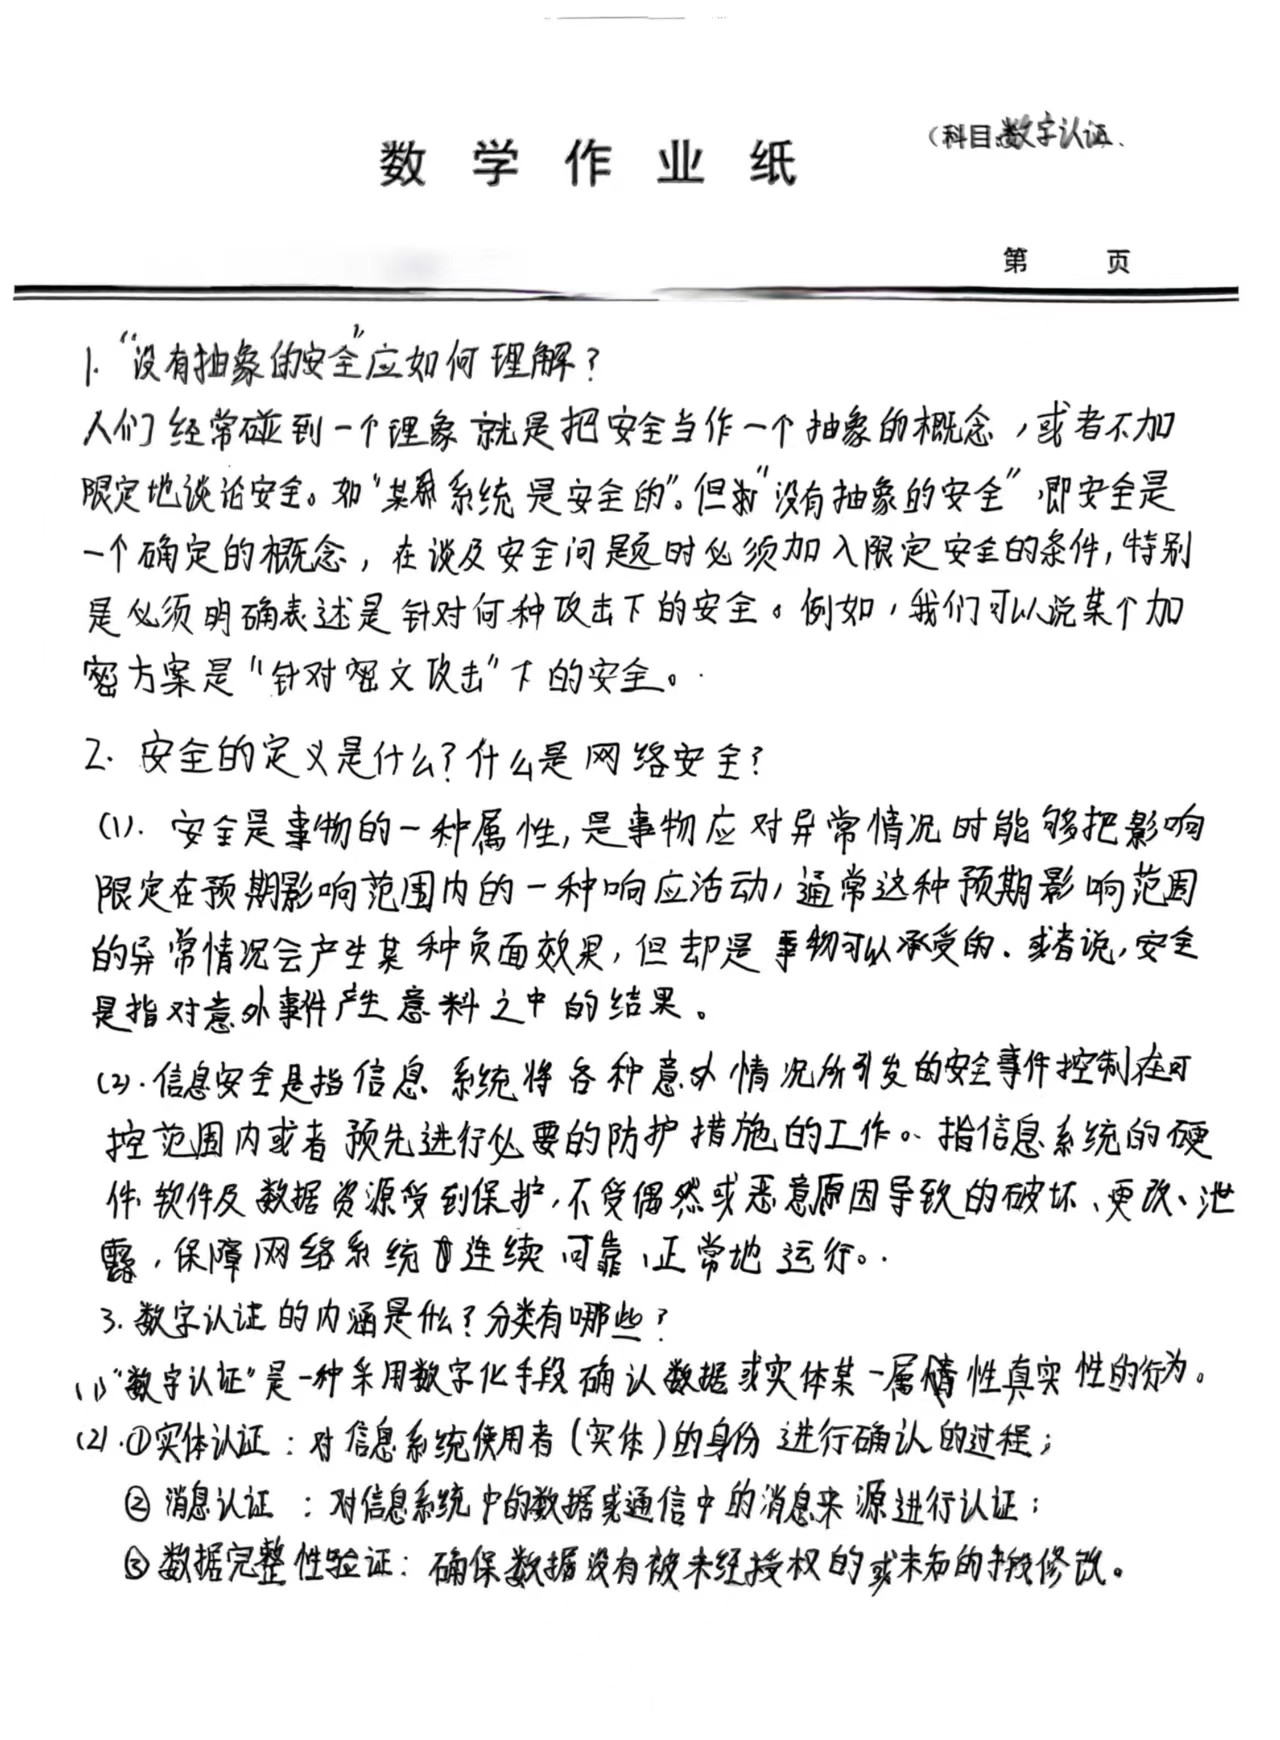 (科目:数字认证.
数学作业纸
第 页
1. "没有抽象的安全"应如何理解?
人们经常碰到一个理象就是把安全当作一个抽象的概念,或者不加
限定地谈论安全。如"某系统是安全的"。但"没有抽象的安全",即安全是
一个确定的概念,在谈及安全问题时必须加入限定安全的条件,特别
是必须明确表述是针对何种攻击下的安全。例如,我们可以说某个加
密方案是"针对密文攻击"下的安全。
2. 安全的定义是什么?什么是网络安全?
(1). 安全是事物的一种属性,是事物应对异常情况时能够把影响
限定在预期影响范围内的一种响应活动,通常这种预期影响范围
的异常情况会产生某种负面效果,但却是事物可以承受的.或者说,安全
是指对意外事件产生意料之中的结果。
(2).信息安全是指信息系统将各种意外情况所引发的安全事件控制在可
控范围内或者预先进行必要的防护措施的工作。指信息系统的硬
件、软件及数据资源受到保护,不受偶然或恶意原因导致的破坏、更改、泄
露,保障网络系统连续、可靠、正常地运行。
3.数字认证的内涵是什么?分类有哪些?
(1)"数字认证"是一种采用数字化手段确认数据或实体某一属性真实性的行为。
(2).①实体认证:对信息系统使用者(实体)的身份进行确认的过程;
②消息认证:对信息系统中的数据或通信中的消息来源进行认证;
③数据完整性验证:确保数据没有被未经授权的或未知的手段修改。